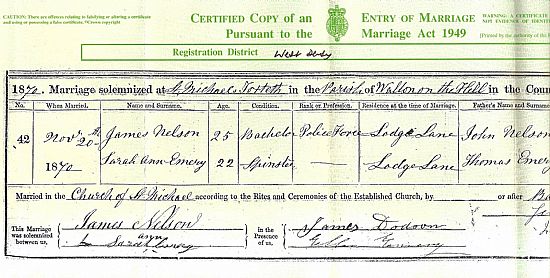 CAUTION: There are offences relating to falsifying or altering a certificate
and using or possessing a false certificate. ©Crown copyright
CERTIFIED COPY of an
Pursuant to the
ENTRY OF MARRIAGE
Marriage Act 1949
WARNING: A CERTIFICATE
NOT EVIDENCE OF IDENTITY
(Printed by authority of the
Registration District West Derby
1870. Marriage solemnized at St Michaels Toxteth in the Parish of Walton on the Hill in the Coun
No. When Married. Name and Surname. Age. Condition. Rank or Profession. Residence at the time of Marriage. Father's Name and Surname
42 Novr 20th James Nelson 25 Bachelor Police Force Lodge Lane John Nelson
1870 Sarah Ann Emery 22 Spinster — Lodge Lane Thomas Emer
Married in the Church of St Michael according to the Rites and Ceremonies of the Established Church, by or after Ba
This Marriage
was solemnized
between us,
James Nelson
ann
Sarah Emery
in the
Presence of
us,
James Dodson